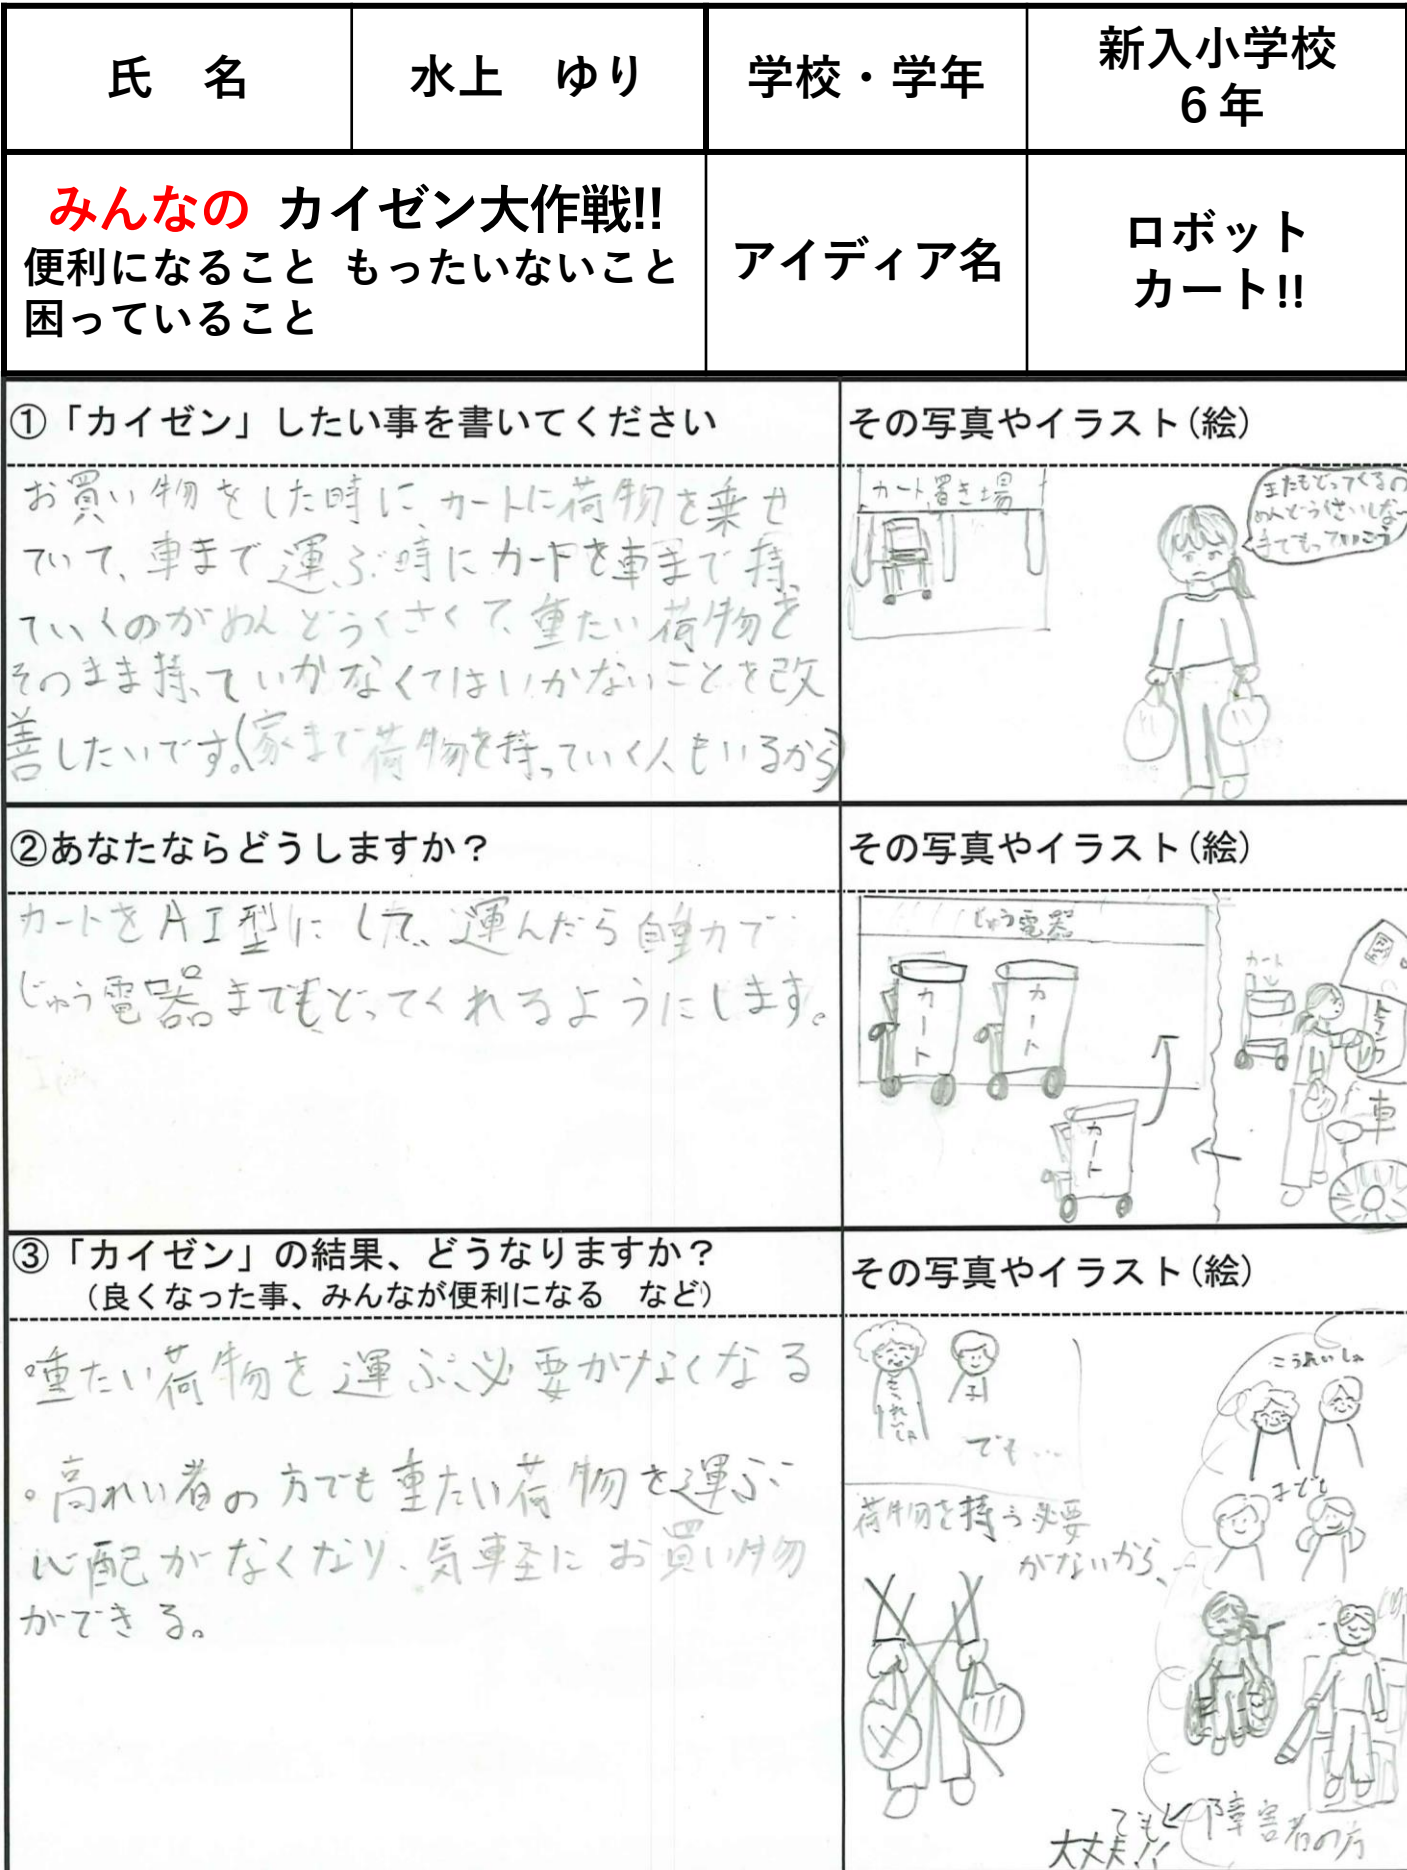 氏　名
水上　ゆり
学校・学年
新入小学校
６年
みんなの カイゼン大作戦!!
便利になること もったいないこと
困っていること
アイディア名
ロボット
カート!!
①「カイゼン」したい事を書いてください
その写真やイラスト(絵)
お買い物をした時に、カートに荷物を乗せ
ていて、車まで運ぶ時にカートを車まで持っ
ていくのがめんどうくさくて、重たい荷物を
そのまま持っていかなくてはいかないことを改
善したいです。(家まで荷物を持っていく人もいるから)
カート置き場
またもどってくるの
めんどうくさいしな〜
手でもっていこう
②あなたならどうしますか？
その写真やイラスト(絵)
カートをAI型にして、運んだら自動力で
じゅう電器までもどってくれるようにします。
じゅう電器
カート
カート
カート
カート
トランク
車
③「カイゼン」の結果、どうなりますか？
（良くなった事、みんなが便利になる　など）
その写真やイラスト(絵)
・重たい荷物を運ぶ必要がなくなる
・高れい者の方でも重たい荷物を運ぶ
心配がなくなり、気軽にお買い物
ができる。
こうれいしゃ
子
でも…
荷物を持つ必要
がないから、…
こうれいしゃ
子ども
障害者の方
でも
大丈夫!!